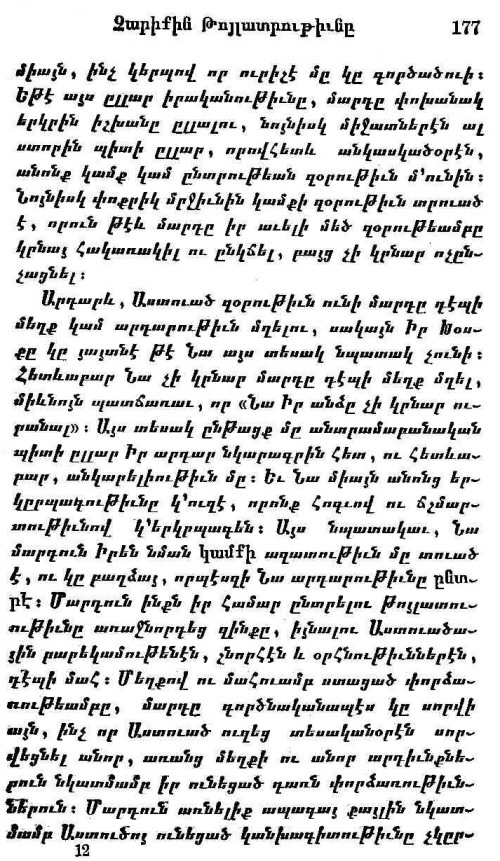 Չարիքին Թոյլատրութիւնը 177
միայն, ինչ կերպով որ ուրիչէ մը կը գործածուի:
Եթէ այս ըլլար իրականութիւնը, մարդը փոխանակ
երկրին իշխանը ըլլալու, նոյնիսկ միջատներէն ալ
ստորին պիտի ըլլար, որովհետև անկասկածօրէն,
անոնք կամք կամ ընտրութեան զօրութիւն մ'ունին:
Նոյնիսկ փոքրիկ մրջիւնին կամքի զօրութիւն տրուած
է, որուն թէև մարդը իր աւելի մեծ զօրութեամբը
կրնայ հակառակիլ ու ընկճել, բայց չի կրնար ոչըն-
չացնել:
Արդարև, Աստուած զօրութիւն ունի մարդը դէպի
մեղք կամ արդարութիւն մղելու, սակայն Իր Խօս-
քը կը յայտնէ թէ Նա այս տեսակ նպատակ չունի:
Հետևաբար Նա չի կրնար մարդը դէպի մեղք մղել,
միևնոյն պատճառաւ, որ «Նա Իր անձը չի կրնար ու-
րանալ»: Այս տեսակ ընթացք մը անտրամաբանական
պիտի ըլլար Իր արդար նկարագրին հետ, ու հետևա-
բար, անկարելիութիւն մը: Եւ Նա միայն անոնց եր-
կըրպագութիւնը կ'ուզէ, որոնք հոգւով ու ճշմար-
տութիւնով կ'երկրպագեն: Այս նպատակաւ, Նա
մարդուն Իրեն նման կամքի ազատութիւն մը տուած
է, ու կը բաղձայ, որպէսզի Նա արդարութիւնը ընտ-
րէ: Մարդուն ինքն իր համար ընտրելու թոյլատու-
ութիւնը առաջնորդեց զինքը, իյնալու Աստուածա-
յին բարեկամութենէն, շնորհէն և օրհնութիւններէն,
դէպի մահ: Մեղքով ու մահուամբ ստացած փորձա-
ռութեամբը, մարդը գործնականապէս կը սորվի
այն, ինչ որ Աստուած ուզեց տեսականօրէն սոր-
վեցնել անոր, առանց մեղքի ու անոր արդիւնքնե-
րուն նկատմամբ իր ունեցած դառն փորձառութիւն-
ներուն: Մարդուն առնելիք ապագայ քայլին նկատ-
մամբ Աստուծոյ ունեցած կանխագիտութիւնը չկըր-
12